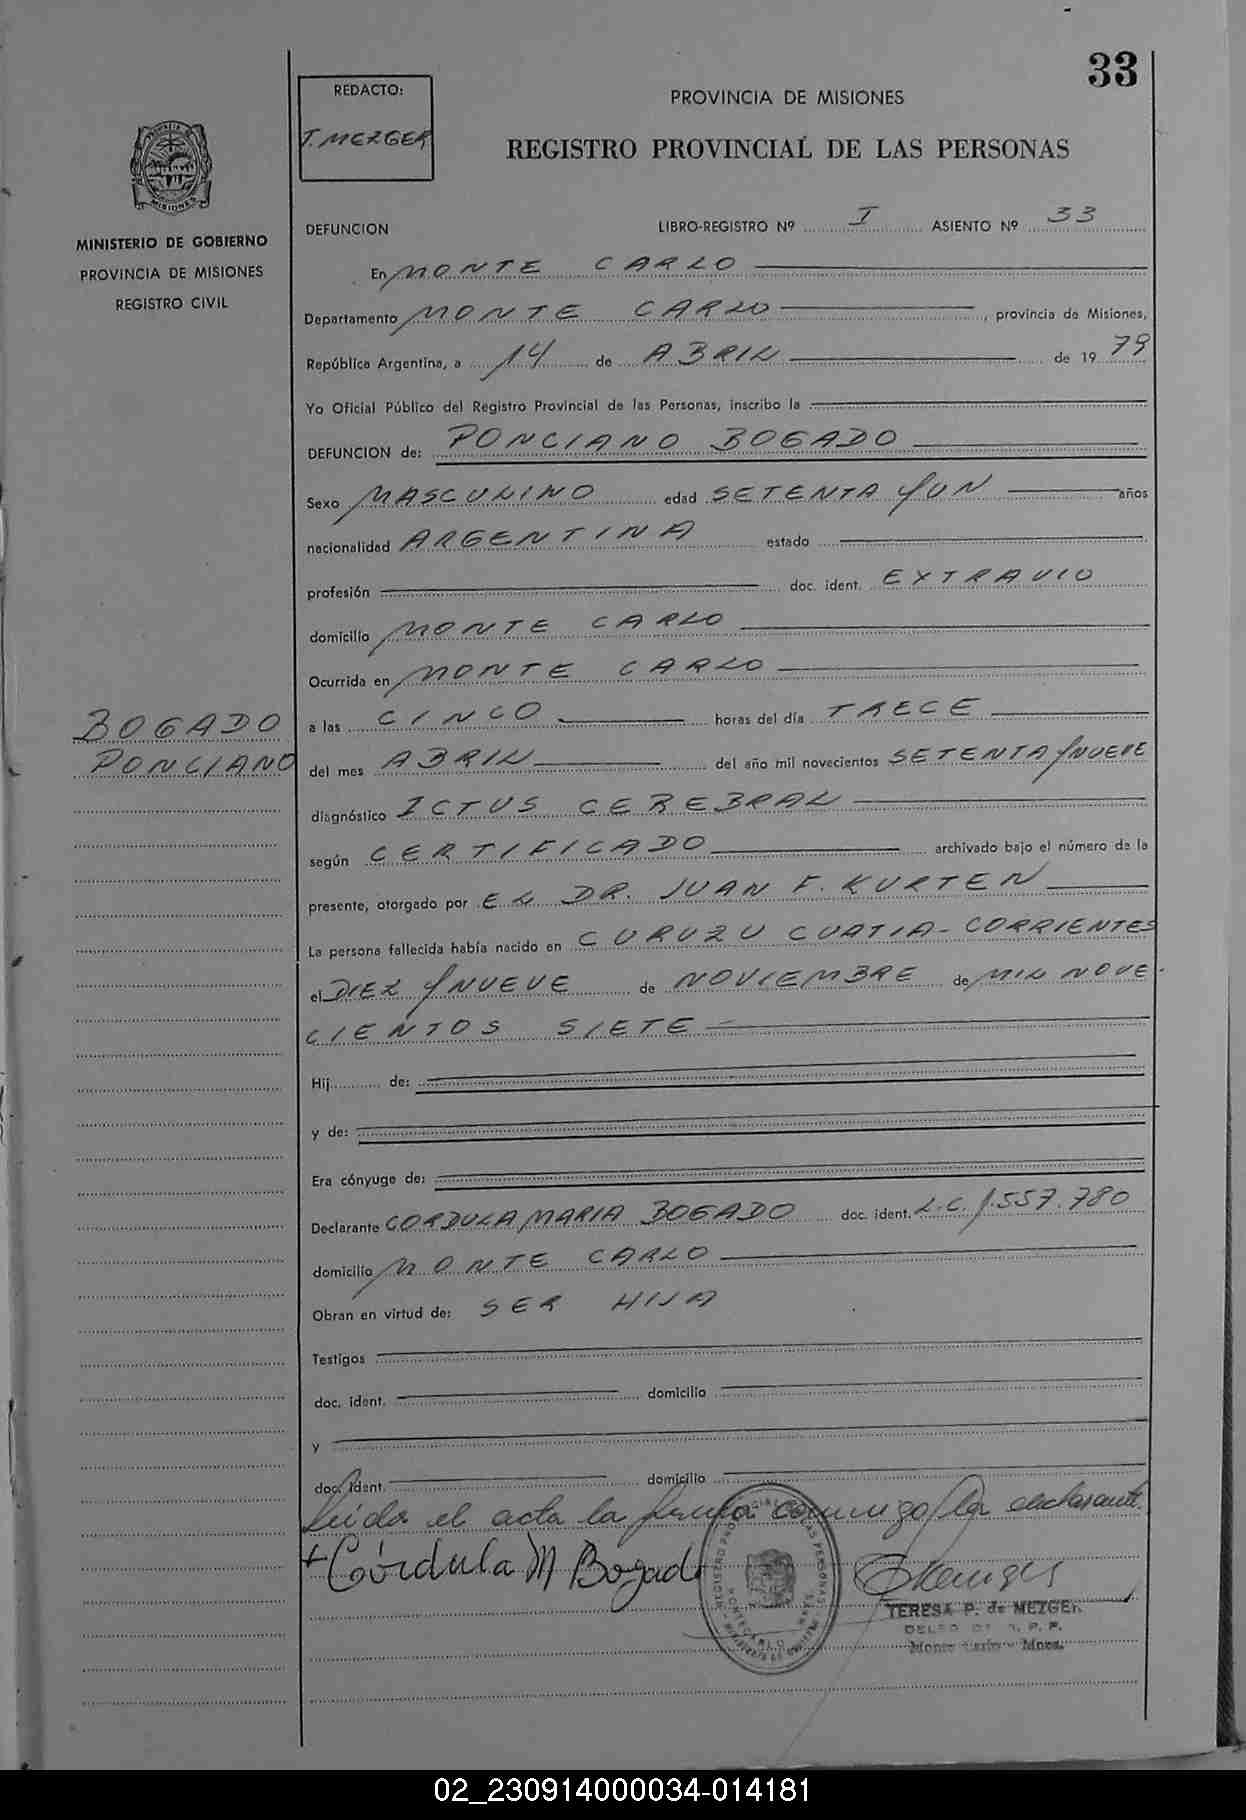 33
REDACTO:
T. MEZGER
PROVINCIA DE MISIONES
REGISTRO PROVINCIAL DE LAS PERSONAS
MISIONES
MINISTERIO DE GOBIERNO
PROVINCIA DE MISIONES
REGISTRO CIVIL
DEFUNCION LIBRO-REGISTRO Nº I ASIENTO Nº 33
En MONTE CARLO
Departamento MONTE CARLO, provincia de Misiones,
República Argentina, a 14 de ABRIL de 19 79
Yo Oficial Público del Registro Provincial de las Personas, inscribo la
DEFUNCION de: PONCIANO BOGADO
Sexo MASCULINO edad SETENTA Y UN años
nacionalidad ARGENTINA estado
profesión doc. ident. EXTRAVIO
domicilio MONTE CARLO
Ocurrida en MONTE CARLO
BOGADO
PONCIANO
a las CINCO horas del día TRECE
del mes ABRIL del año mil novecientos SETENTA Y NUEVE
diagnóstico ICTUS CEREBRAL
según CERTIFICADO archivado bajo el número de la
presente, otorgado por EL DR. JUAN F. KURTEN
La persona fallecida había nacido en CURUZU CUATIA - CORRIENTES
el DIEZ Y NUEVE de NOVIEMBRE de MIL NOVE-
CIENTOS SIETE
Hij de:
y de:
Era cónyuge de:
Declarante CORDULA MARIA BOGADO doc. ident. L.C. 1.557.780
domicilio MONTE CARLO
Obran en virtud de: SER HIJA
Testigos
doc. ident. domicilio
y
doc. ident. domicilio
Leída el acta la firma conmigo la declarante.
+ Córdula M Bogado
TERESA P. de MEZGER
Monte Carlo - Mnes.
02_230914000034-014181